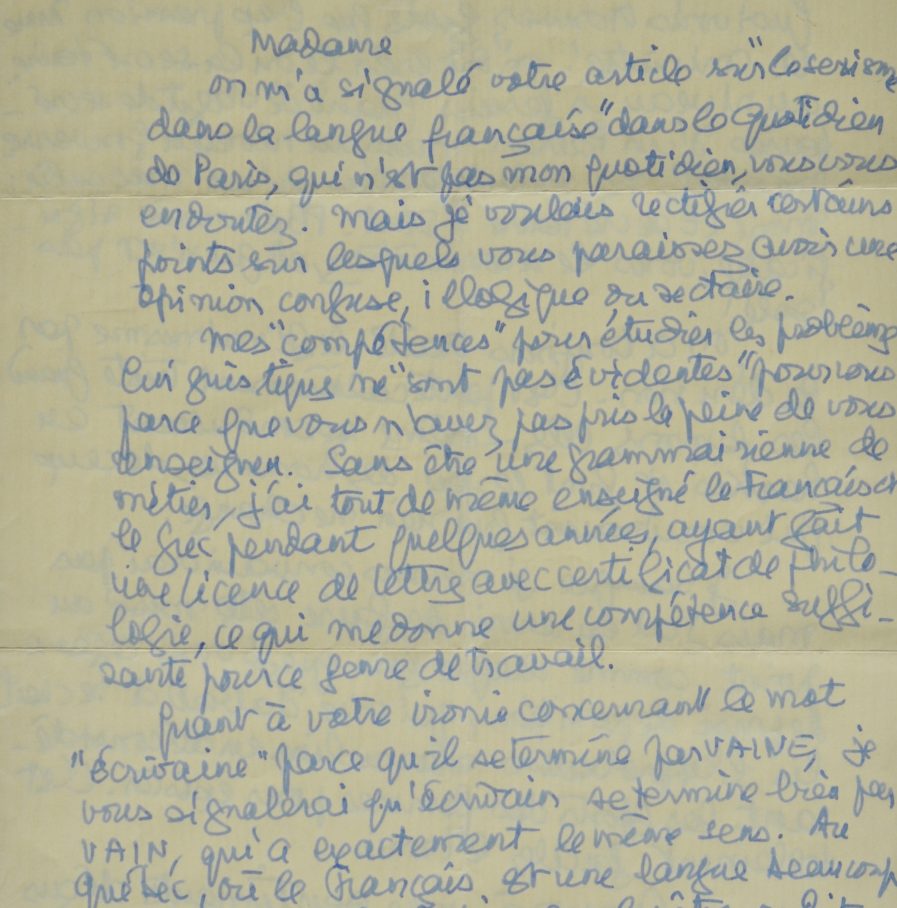 Madame
on m'a signalé votre article sur "le sexisme
dans la langue française" dans le Quotidien
de Paris, qui n'est pas mon quotidien, vous vous
en doutez. Mais je voulais rectifier certains
points sur lesquels vous paraissez avoir une
opinion confuse, illogique ou sectaire.
Mes "compétences" pour étudier les problèmes
linguistiques ne "sont pas évidentes" pour vous
parce que vous n'avez pas pris la peine de vous
renseigner. Sans être une grammairienne de
métier, j'ai tout de même enseigné le Français et
le grec pendant quelques années, ayant fait
une licence de lettres avec certificat de philo-
logie, ce qui me donne une compétence suffi-
sante pour ce genre de travail.
Quant à votre ironie concernant le mot
"écrivaine" parce qu'il se termine par VAINE, je
vous signalerai qu'écrivain se termine bien par
VAIN, qui a exactement le même sens. Au
Québec, où le Français est une langue beaucoup